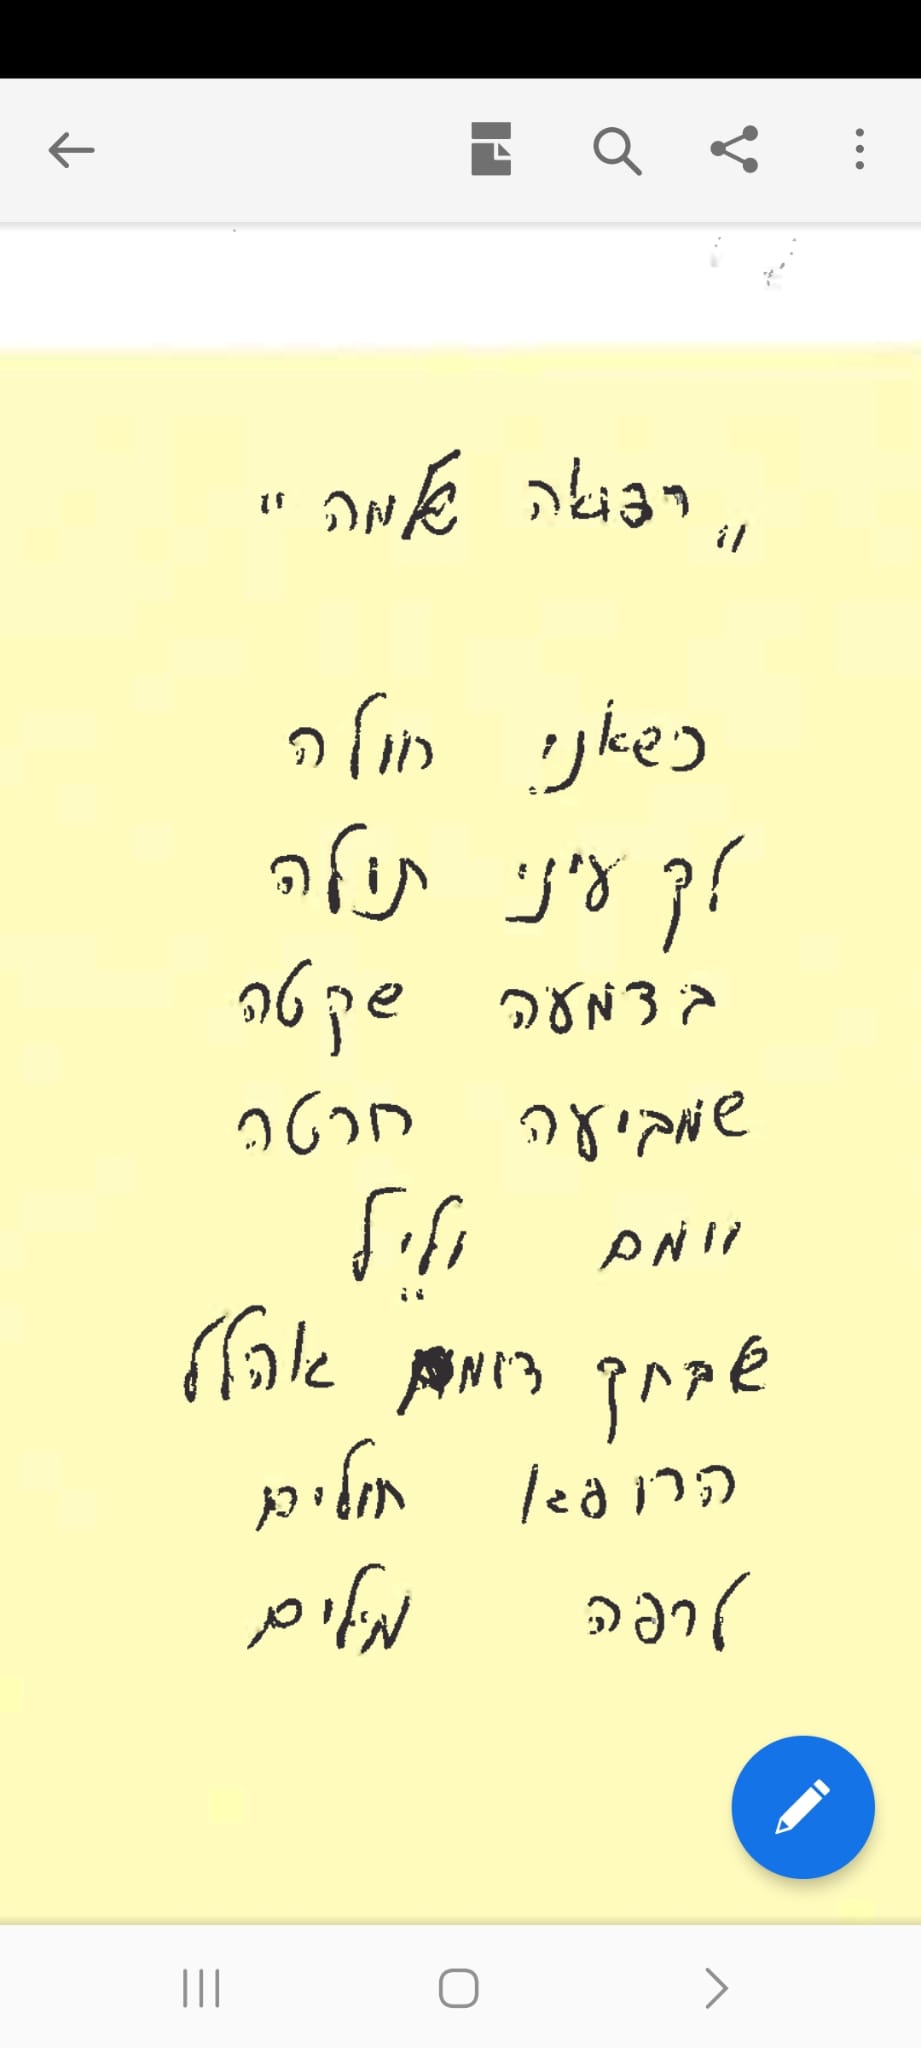 "רפואה שלמה"
כשאני חולה
לך עיני תולה
בדמעה שקטה
שמביעה חרטה
יומם וליל
שבחך אהלל
הרופא חולים
לרפה מילים